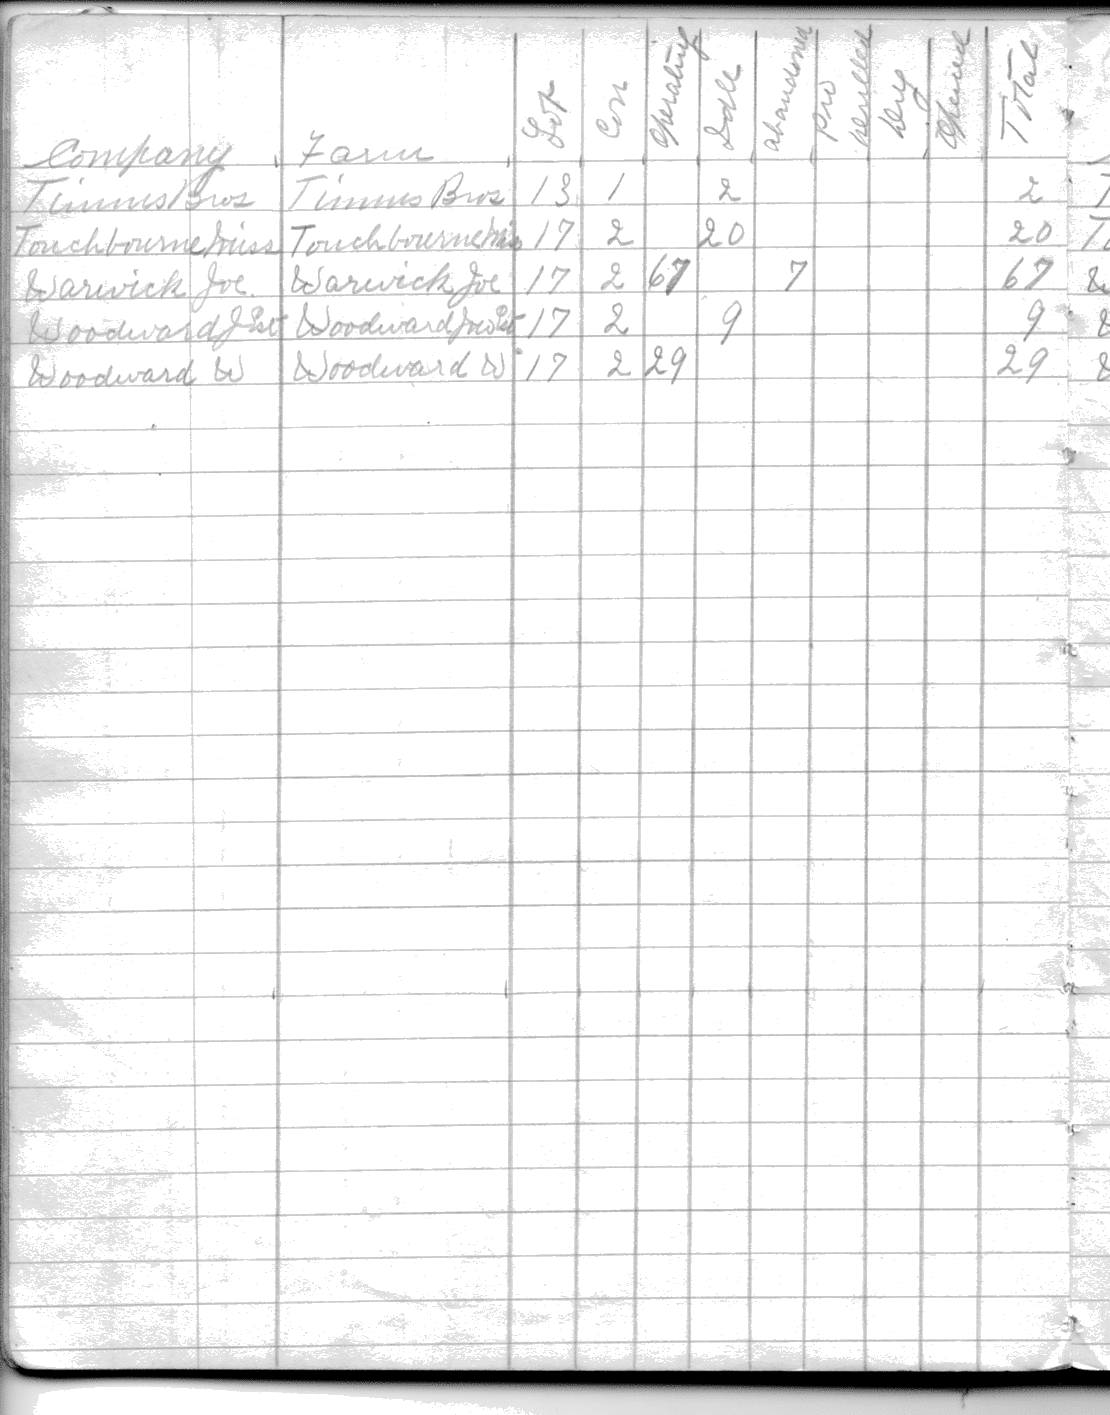 Company Farm Lot Con Operating Idle abandoned Pro Drilled Dry Total
Timms Bros Timms Bros 13 1 2 2
Touchbourne Miss Touchbourne Miss 17 2 20 20
Warwick Joe. Warwick Joe 17 2 67 7 67
Woodward J Est Woodward Est 17 2 9 9
Woodward W Woodward W 17 2 29 29